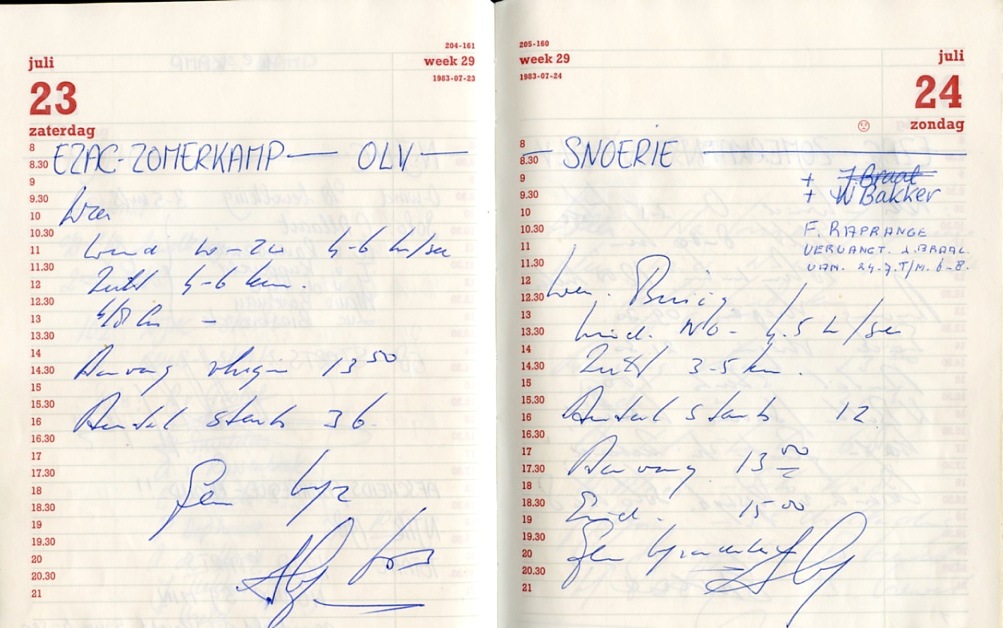 204-161
juli
week 29
1983-07-23
23
zaterdag
8
8.30
9
9.30
10
10.30
11
11.30
12
12.30
13
13.30
14
14.30
15
15.30
16
16.30
17
17.30
18
18.30
19
19.30
20
20.30
21
EZAC-ZOMERKAMP — OLV —
Weer
Wind 4-6 m/sec
Zicht 4-6 km.
4/8
Aanvang vliegen 13 50
Aantal starts 36
Geen
205-160
week 29
juli
1983-07-24
24
zondag
8
8.30
9
9.30
10
10.30
11
11.30
12
12.30
13
13.30
14
14.30
15
15.30
16
16.30
17
17.30
18
18.30
19
19.30
20
20.30
21
— SNOERIE —
+ J. Braal
+ W Bakker
F. RIAPRANGE
VERVANGT. J. BRAAL
VAN. 24-7. T/M. 6-8.
Weer.
Wind. NO - 4.5 m/sec
Zicht 3-5 km.
Aantal starts 12
Aanvang 13 00
Eind. 15 00
Geen